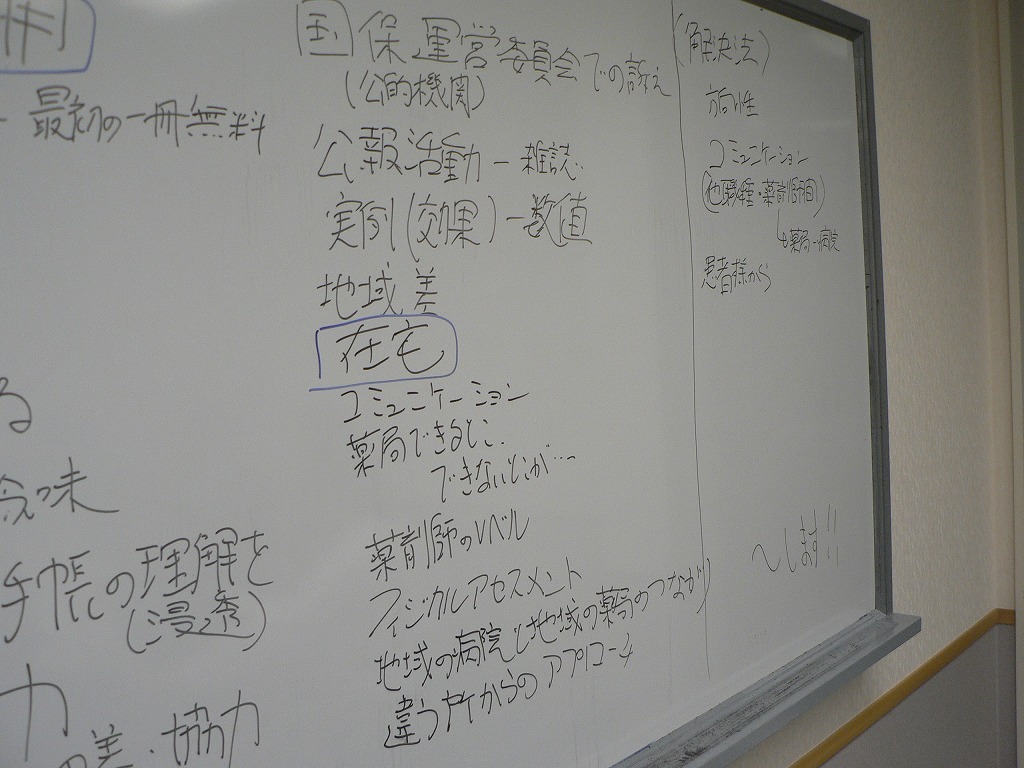 - 最初の一冊無料
る
味
手帳の理解を
(浸透)
力
の差・協力
国保運営委員会での訴え
(公的機関)
公報活動 - 雑誌..
実例(効果) - 数値
地域差
在宅
コミュニケーション
薬局できるとこ.
できないとこが…
薬剤師のレベル
フィジカルアセスメント
地域の病院と地域の薬局のつながり
違う所からのアプローチ
(解決法)
方向性
コミュニケーション
(他職種・薬剤師間)
↳薬局-病院
患者様から
～します!!